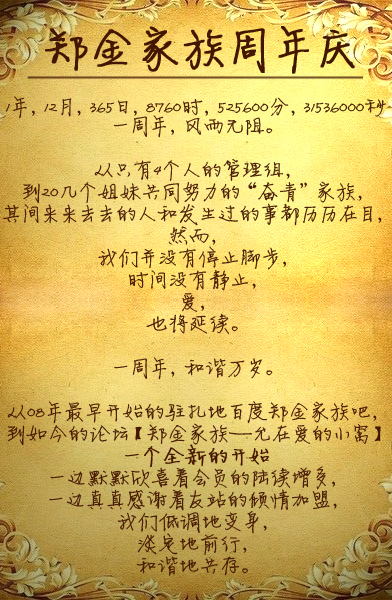 郑金家族周年庆
1年，12月，365日，8760时，525600分，31536000秒，
一周年，风雨无阻。
从只有4个人的管理组，
到20几个姐妹共同努力的“奋青”家族，
其间来来去去的人和发生过的事都历历在目，
然而，
我们并没有停止脚步，
时间没有静止，
爱，
也将延续。
一周年，和谐万岁。
从08年最早开始的驻扎地百度郑金家族吧，
到如今的论坛【郑金家族—允在爱的小窝】
一个全新的开始
一边默默欣喜着会员的陆续增多，
一边真真感谢着友站的倾情加盟，
我们低调地变身，
淡定地前行，
和谐地共存。